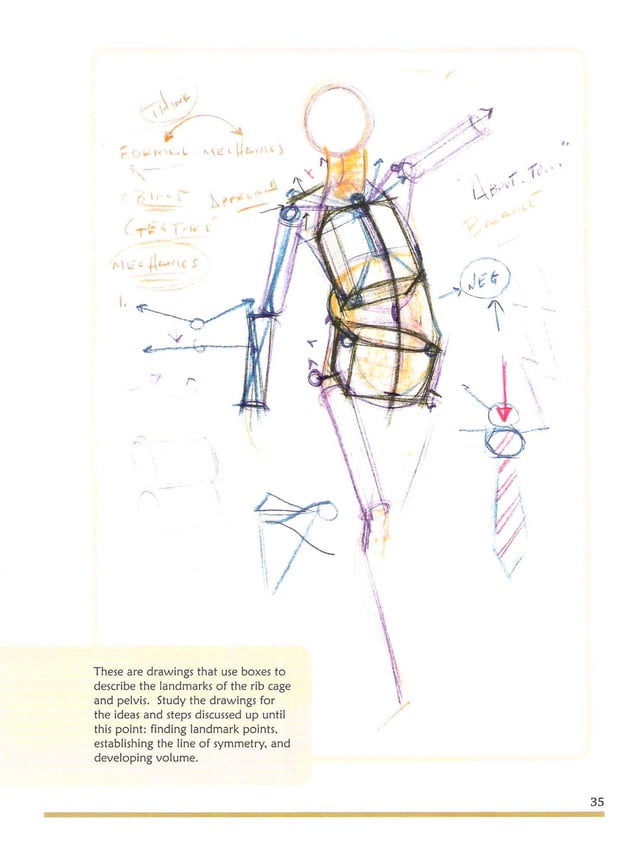 THINK
FORMAL MECHANICS
OBJECT APPROACH
GESTURE
MECHANICS
1.
"ABOUT. TO..."
BALANCE
NEG
These are drawings that use boxes to
describe the landmarks of the rib cage
and pelvis. Study the drawings for
the ideas and steps discussed up until
this point: finding landmark points,
establishing the line of symmetry, and
developing volume.
35